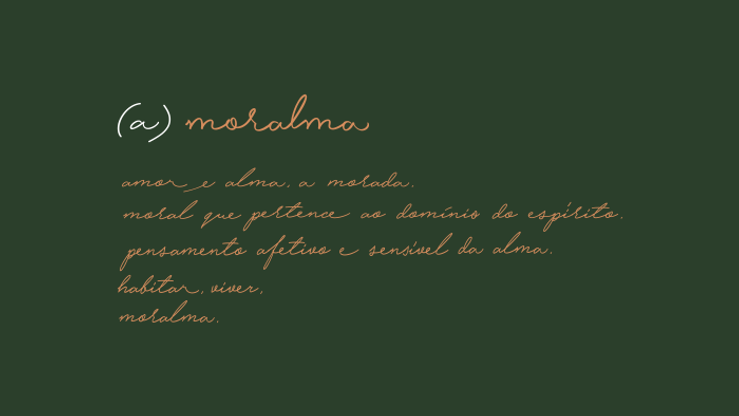 (a) moralma
amor e alma. a morada.
moral que pertence ao domínio do espírito.
pensamento afetivo e sensível da alma.
habitar, viver,
moralma.